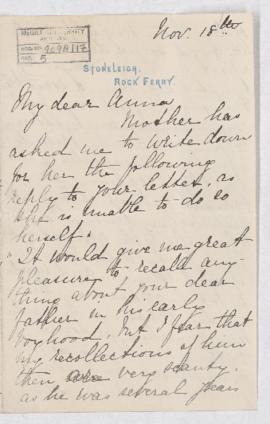 Nov. 18th
909A/17
5
STONELEIGH,
ROCK FERRY.
My dear Anna
Mother has
asked me to write down
for her the following
reply to your letter, as
she is unable to do so
herself.
"It would give me great
pleasure to recall any-
thing about your dear
father in his early
boyhood, but I fear that
my recollections of him
then are very scanty.
as he was several years